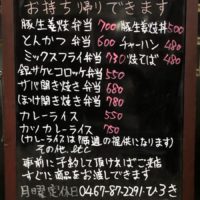 お持ち帰りできます
豚生姜焼弁当 700 豚生姜丼 500
とんかつ弁当 600 チャーハン 480
ミックスフライ弁当 730 焼そば 480
銀サケとコロッケ弁当 550
サバ開き焼き弁当 680
ほっけ開き焼き弁当 780
カレーライス 550
カツカレーライス 750
(カレーライスは隔週の提供になります)
その他、etc
事前に予約して頂ければご来店
すぐに商品をお渡しできます。
月曜定休日 0467-87-2291 ひろき